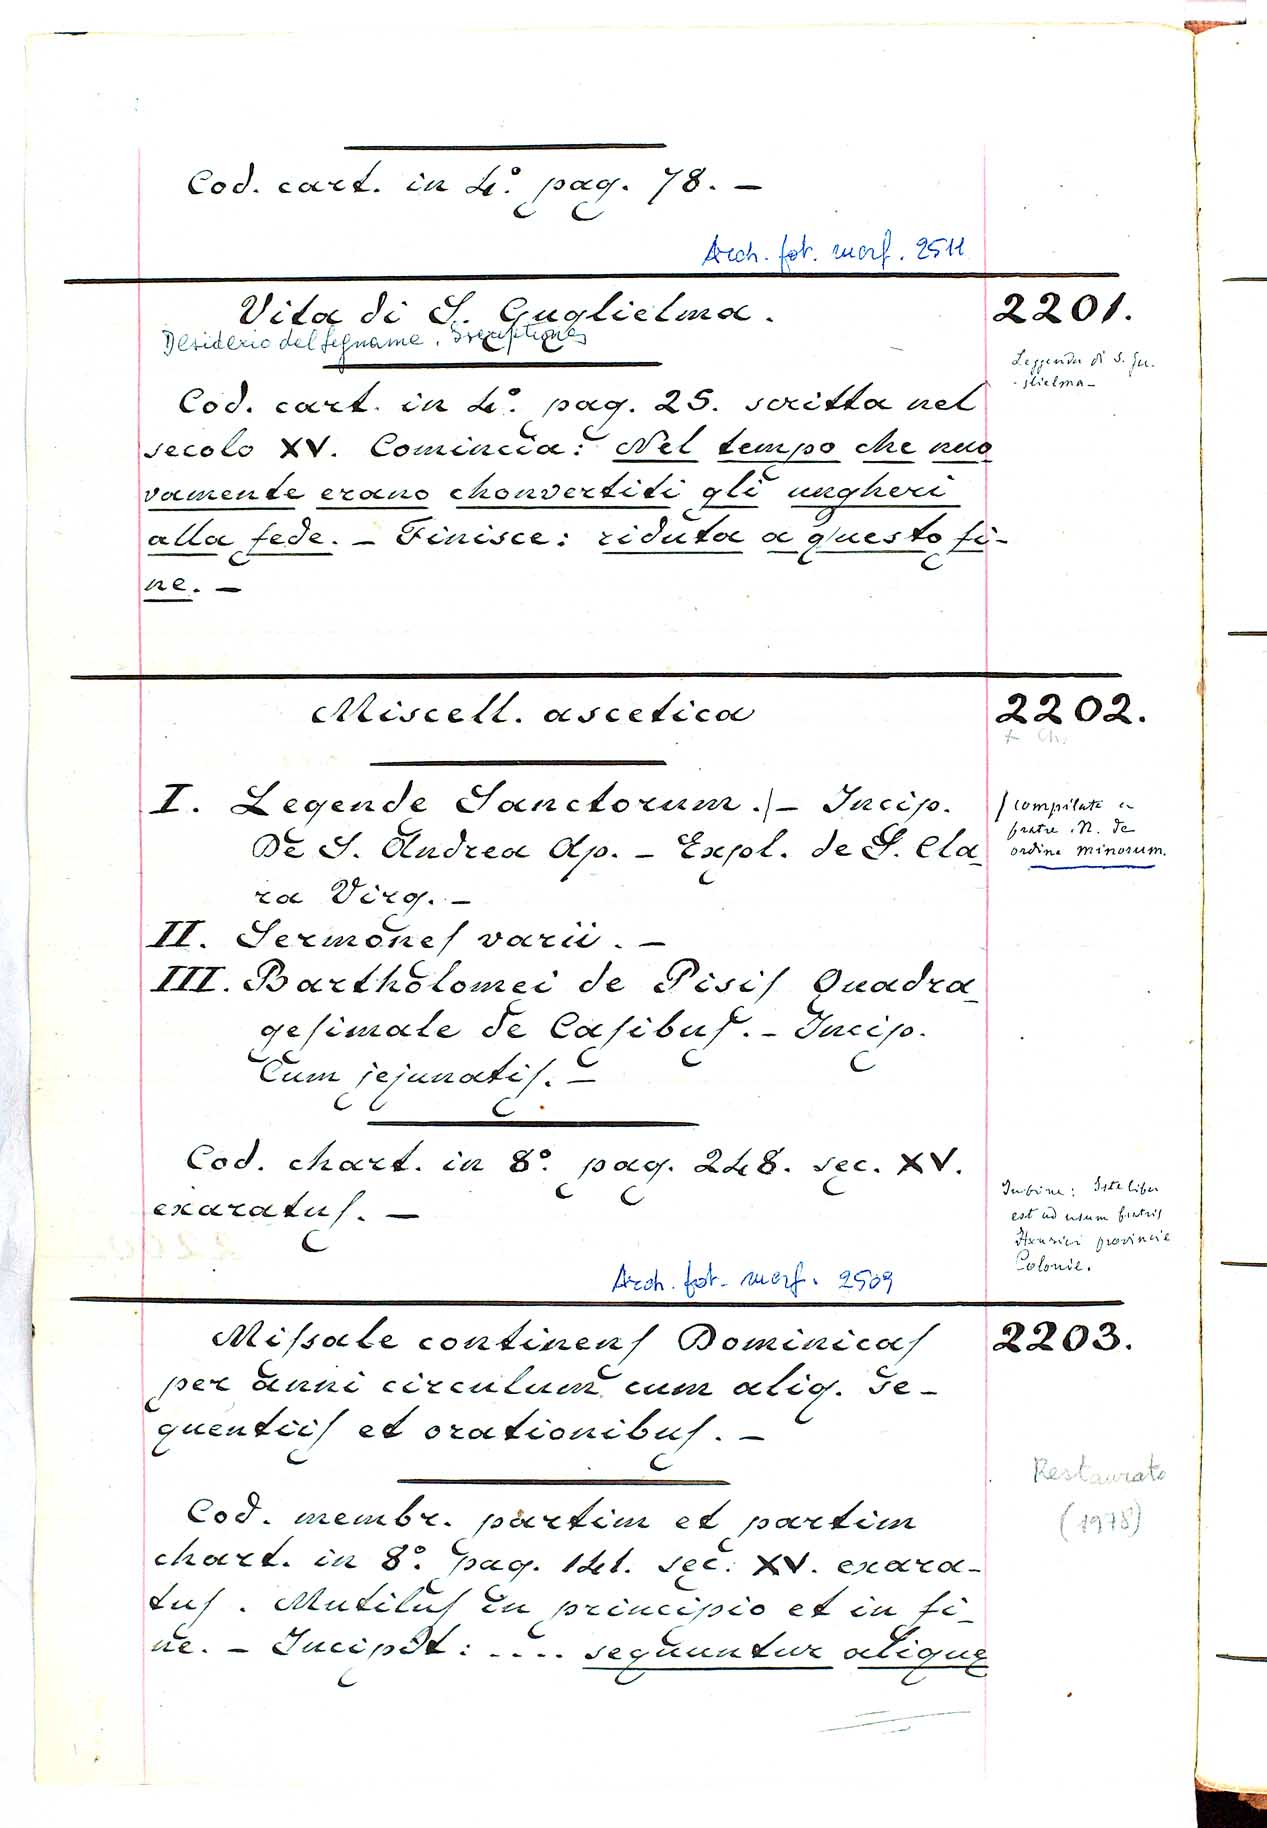 Cod. cart. in 4.° pag. 78. –
Arch. fot. morf. 2511
Vita di S. Guglielma.
2201.
Desiderio del legname.
Leggenda di S. Gu-
glielma –
Cod. cart. in 4.° pag. 25. scritta nel
secolo XV. Comincia: Nel tempo che nuo
vamente erano chonvertiti gli ungheri
alla fede. – Finisce: riduta a questo fi-
ne. –
Miscell. ascetica
2202.
+ Ch.
I. Legende Sanctorum./– Incip.
De S. Andrea Ap. – Expl. de S. Cla-
ra Virg. –
/ compilate a
fratre .N. de
ordine minorum.
II. Sermones varii. –
III. Bartholomei de Pisis Quadra-
gesimale de Casibus. – Incip.
Cum jejunatis. –
Cod. chart. in 8.° pag. 248. sec. XV.
exaratus. –
In fine: Iste liber
est ad usum fratris
Henrici provincie
Colonie.
Arch. fot. morf. 2509
Missale continens Dominicas
2203.
per anni circulum cum aliq. Se-
quentiis et orationibus. –
Restaurato
(1978)
Cod. membr. partim et partim
chart. in 8.° pag. 141. sec. XV. exara-
tus. Mutilus in principio et in fi-
ne. – Incipit: .... sequuntur alique